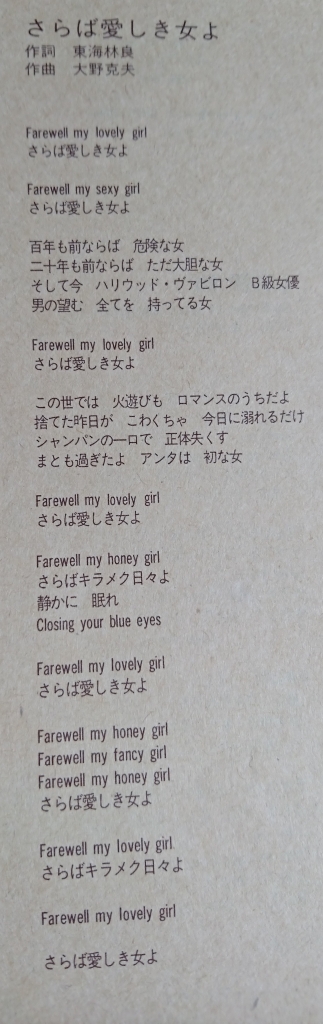 さらば愛しき女よ
作詞　東海林良
作曲　大野克夫
Farewell my lovely girl
さらば愛しき女よ
Farewell my sexy girl
さらば愛しき女よ
百年も前ならば　危険な女
二十年も前ならば　ただ大胆な女
そして今　ハリウッド・ヴァビロン　B級女優
男の望む　全てを　持ってる女
Farewell my lovely girl
さらば愛しき女よ
この世では　火遊びも　ロマンスのうちだよ
捨てた昨日が　こわくちゃ　今日に溺れるだけ
シャンパンの一口で　正体失くす
まとも過ぎたよ　アンタは　初な女
Farewell my lovely girl
さらば愛しき女よ
Farewell my honey girl
さらばキラメク日々よ
静かに　眠れ
Closing your blue eyes
Farewell my lovely girl
さらば愛しき女よ
Farewell my honey girl
Farewell my fancy girl
Farewell my honey girl
さらば愛しき女よ
Farewell my lovely girl
さらばキラメク日々よ
Farewell my lovely girl
さらば愛しき女よ